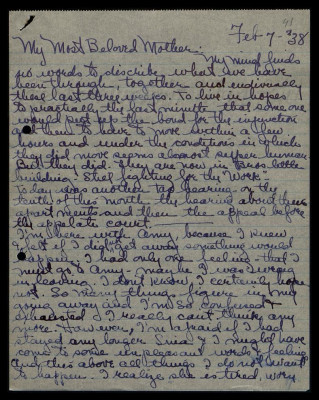 41
Feb-7-38
My Most Beloved Mother:-
My mind finds
no words to discribe what we have
been through, together and individually
these last three weeks. To live in hopes
to practically the last minute that some one
would put up the bond for the injunction
and then to have to move within a few
hours and under the conditions in which
they did move seems almost super human
But they did. They are now in
building. Still fighting for the Work.
Today was another tax hearing on the
tenth of this month the hearing about
apartments and then the appeal before
the appelate court.
I'm here with Amy, because I knew
I felt if I didn't get away something would
happen. I had only one feeling that I
must go to Amy- maybe I was wrong
in leaving. I don't know, I certainly hope
not. So many things figure in my
going away and I'm so confused &
exhausted I really cant think any
more. However, I'm afraid if I had
stayed any longer Sinia & I might have
come to some unpleasant words & feeling
And this above all things I do not want
to happen. I realize she is tired, worn